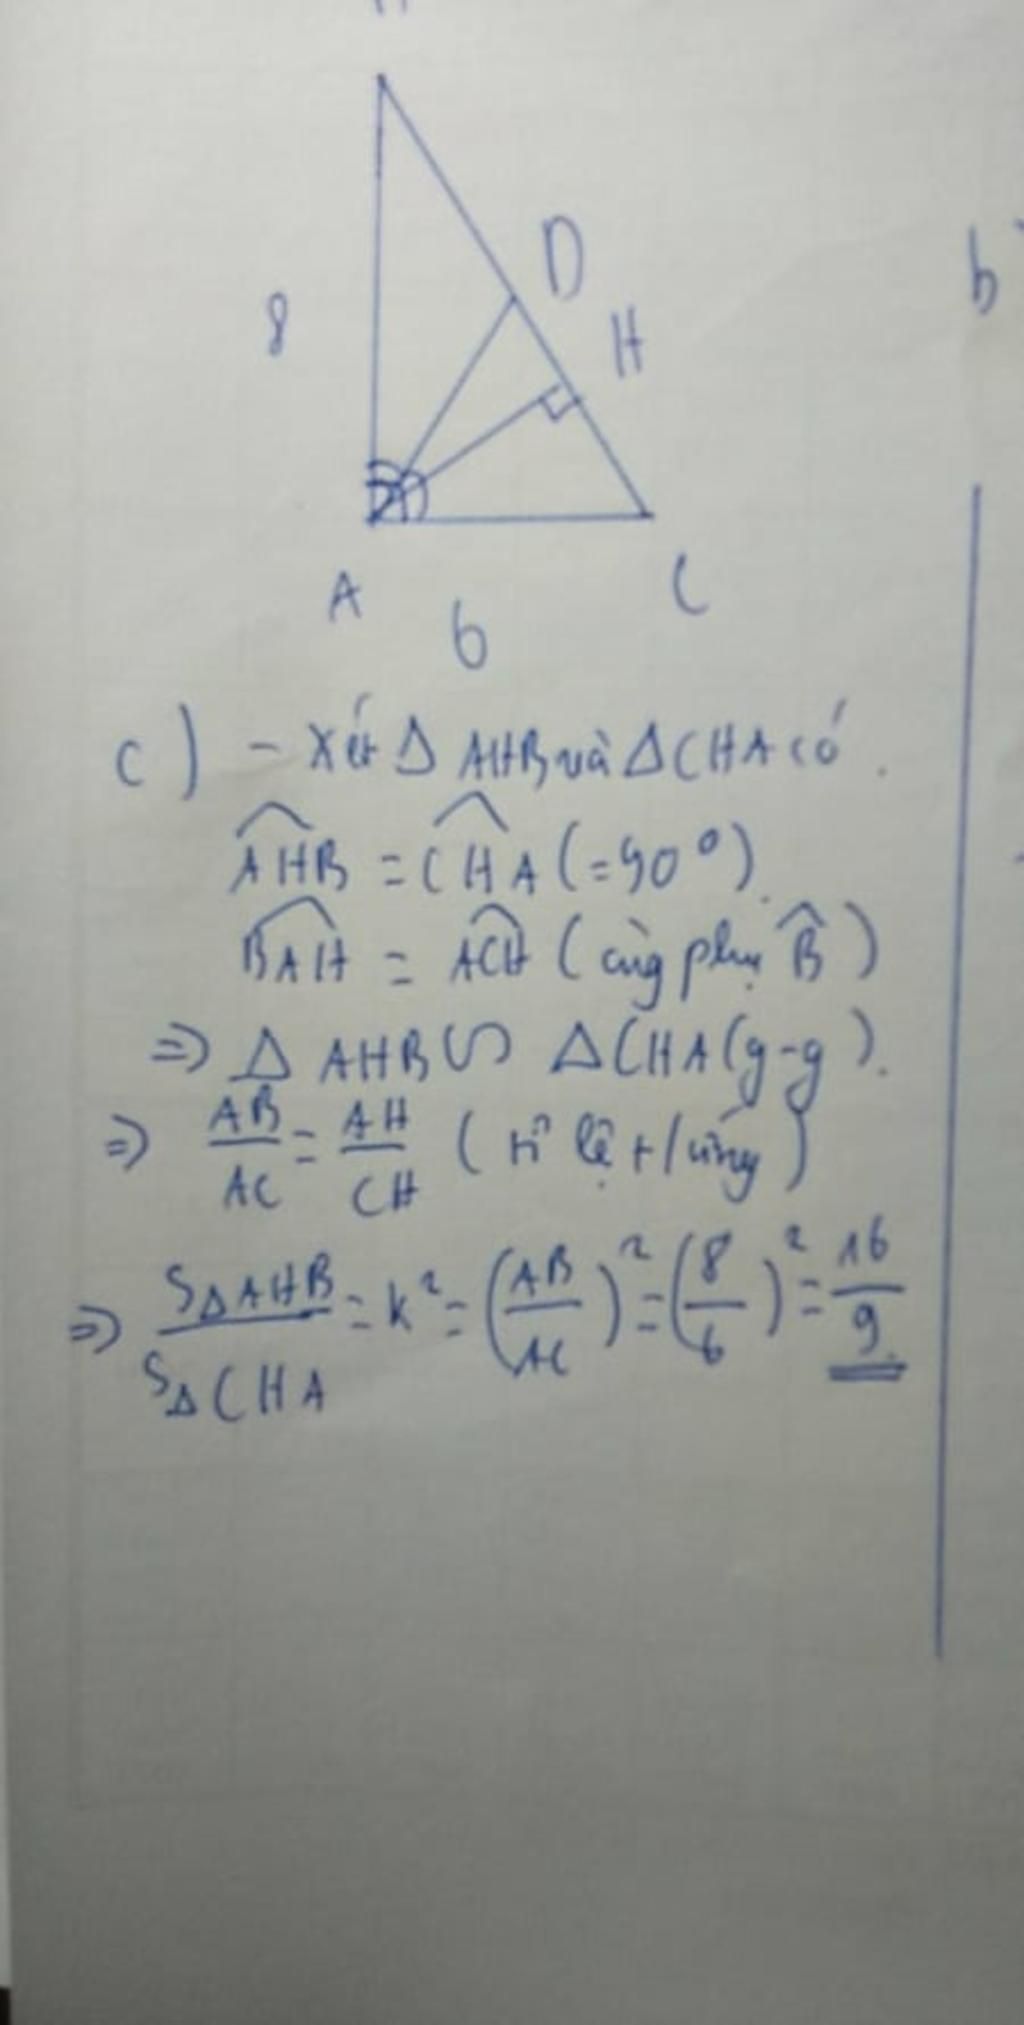 D
8
H
b
A
C
6
c) - Xét Δ AHB và ΔCHA có.
AHB = CHA (=90°).
BAH = ACH (cùng phụ B)
=> Δ AHB ∽ ΔCHA (g-g).
=> AB/AC = AH/CH (tỉ lệ t/ứng)
=> SΔAHB/SΔCHA = k² = (AB/AC)² = (8/6)² = 16/9.